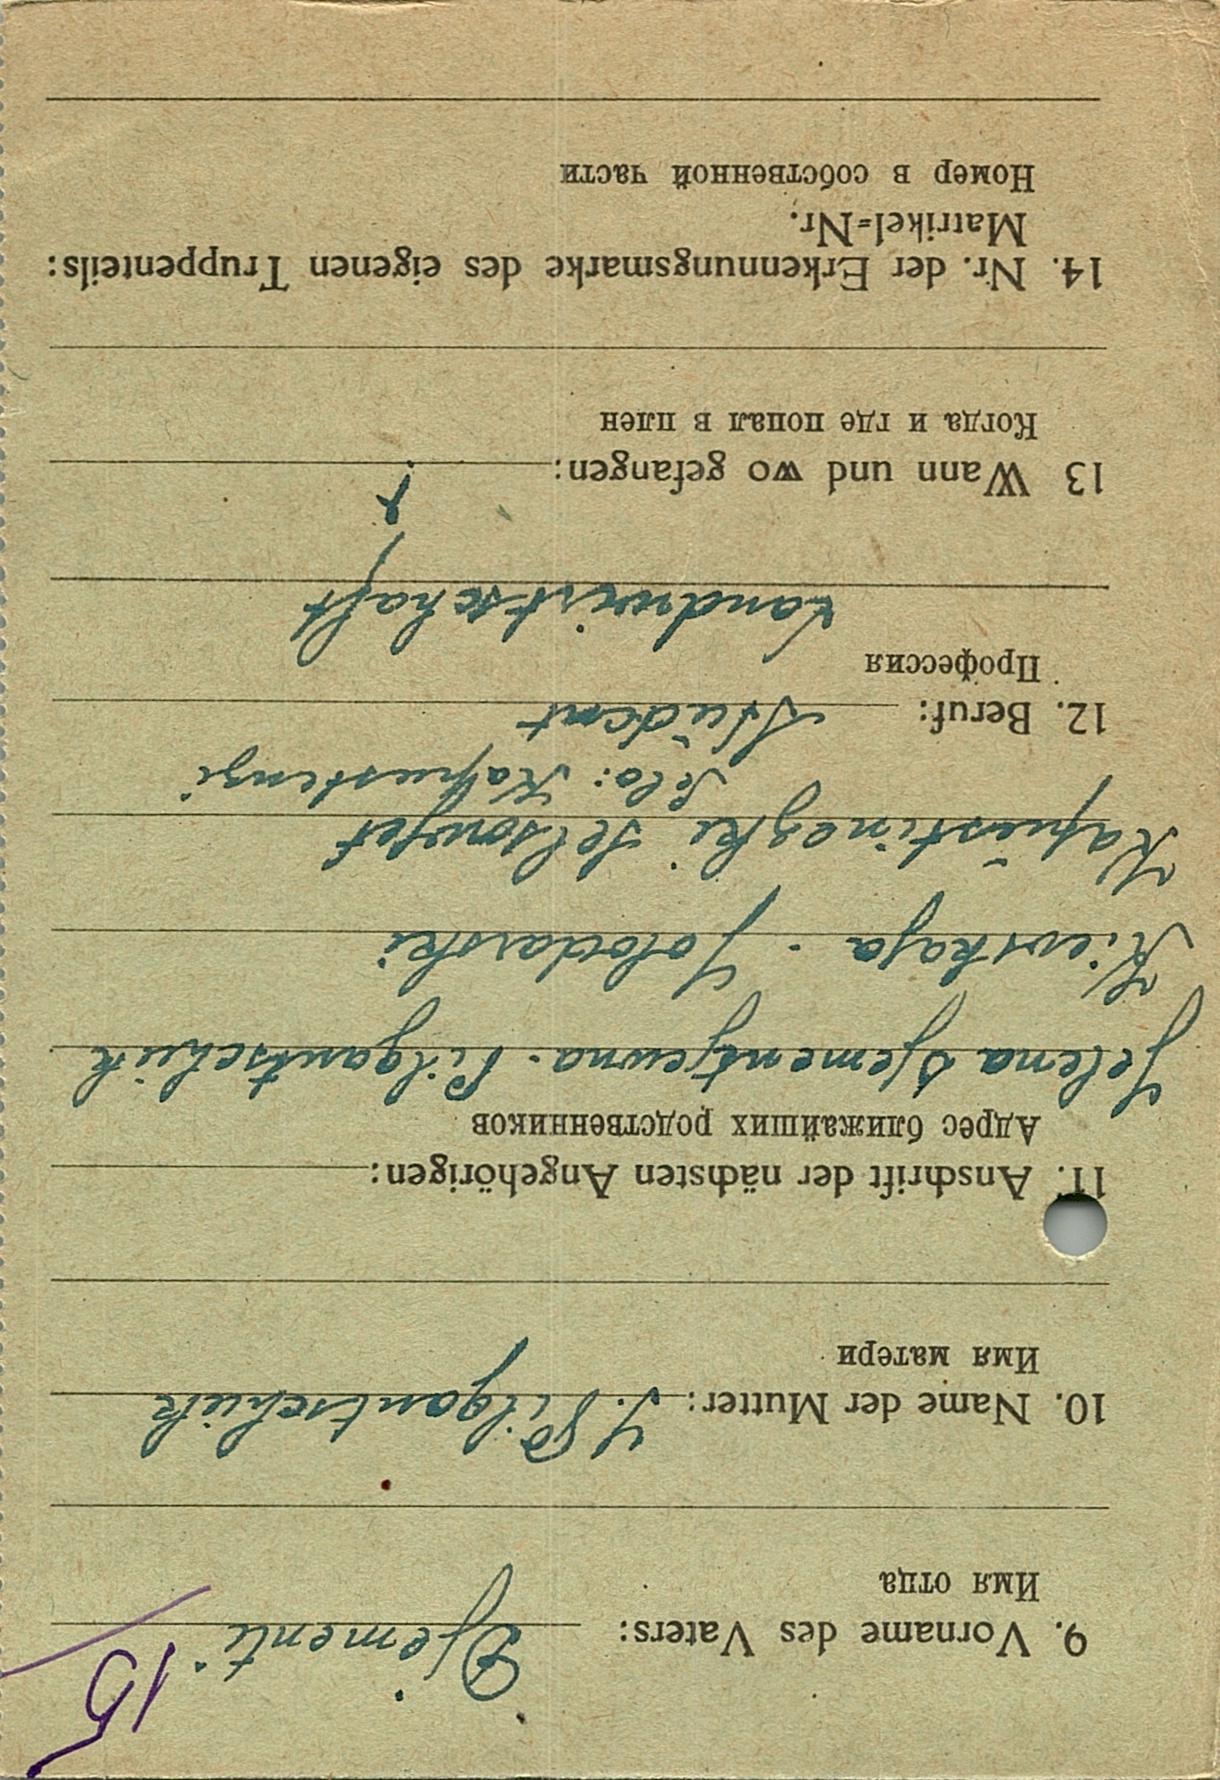 15
9. Vorname des Vaters: Djementi
Имя отца
10. Name der Mutter: J. Pilgantschuk
Имя матери
11. Anschrift der nächsten Angehörigen:
Адрес ближайших родственников
Jelena Djementjewna - Pilgantschuk
Kiewskaja - Wolodarski
Kapustinezki Selsowjet
Selo: Kapustinzi
12. Beruf: Student
Профессия
Landwirtschaft
13 Wann und wo gefangen:
Когда и где попал в плен
14. Nr. der Erkennungsmarke des eigenen Truppenteils:
Matrikel-Nr.
Номер в собственной части